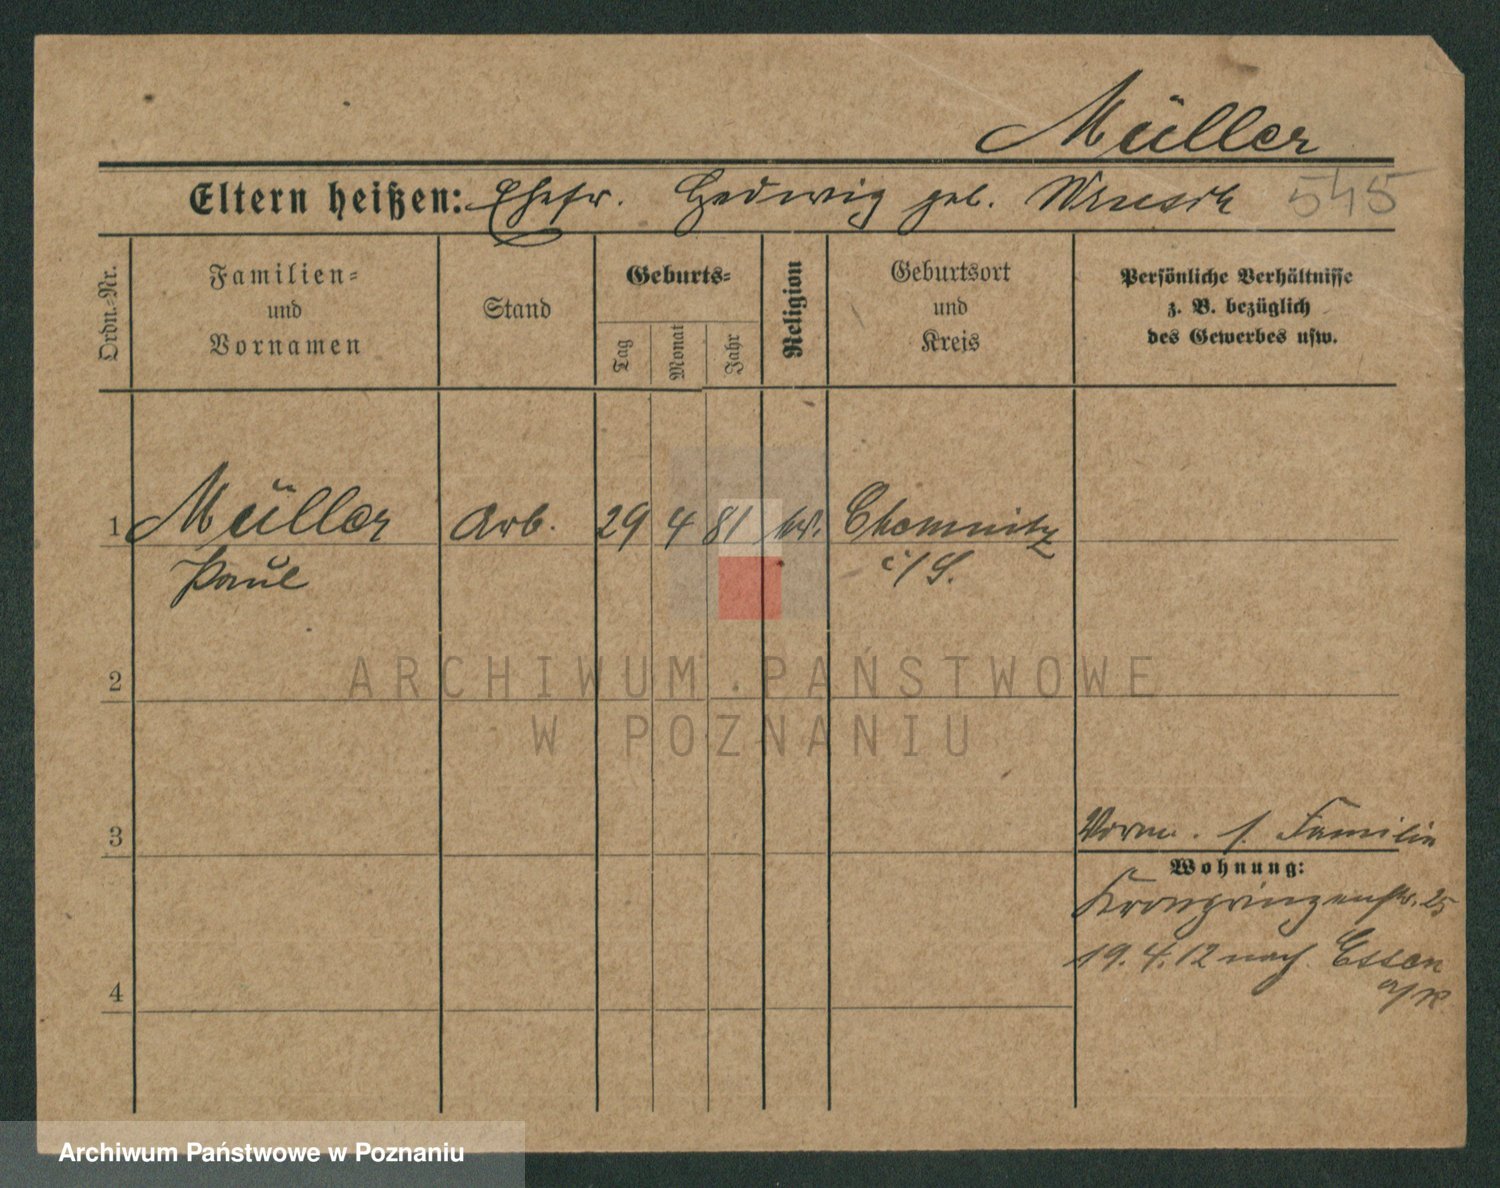 Müller
Eltern heißen: Ehefr. Hedwig geb. 545
Ordn.-Nr.
Familien-
und
Vornamen
Stand
Geburts-
Tag
Monat
Jahr
Religion
Geburtsort
und
Kreis
Persönliche Verhältnisse
z. B. bezüglich
des Gewerbes usw.
1 Müller Arb. 29 4 81 Chemnitz
Paul i/S.
2
ARCHIWUM PAŃSTWOWE
W POZNANIU
3
s. Familie
Wohnung:
Kronprinzenstr. 25
19. 4. 12 nach Essen
a/R.
4
Archiwum Państwowe w Poznaniu